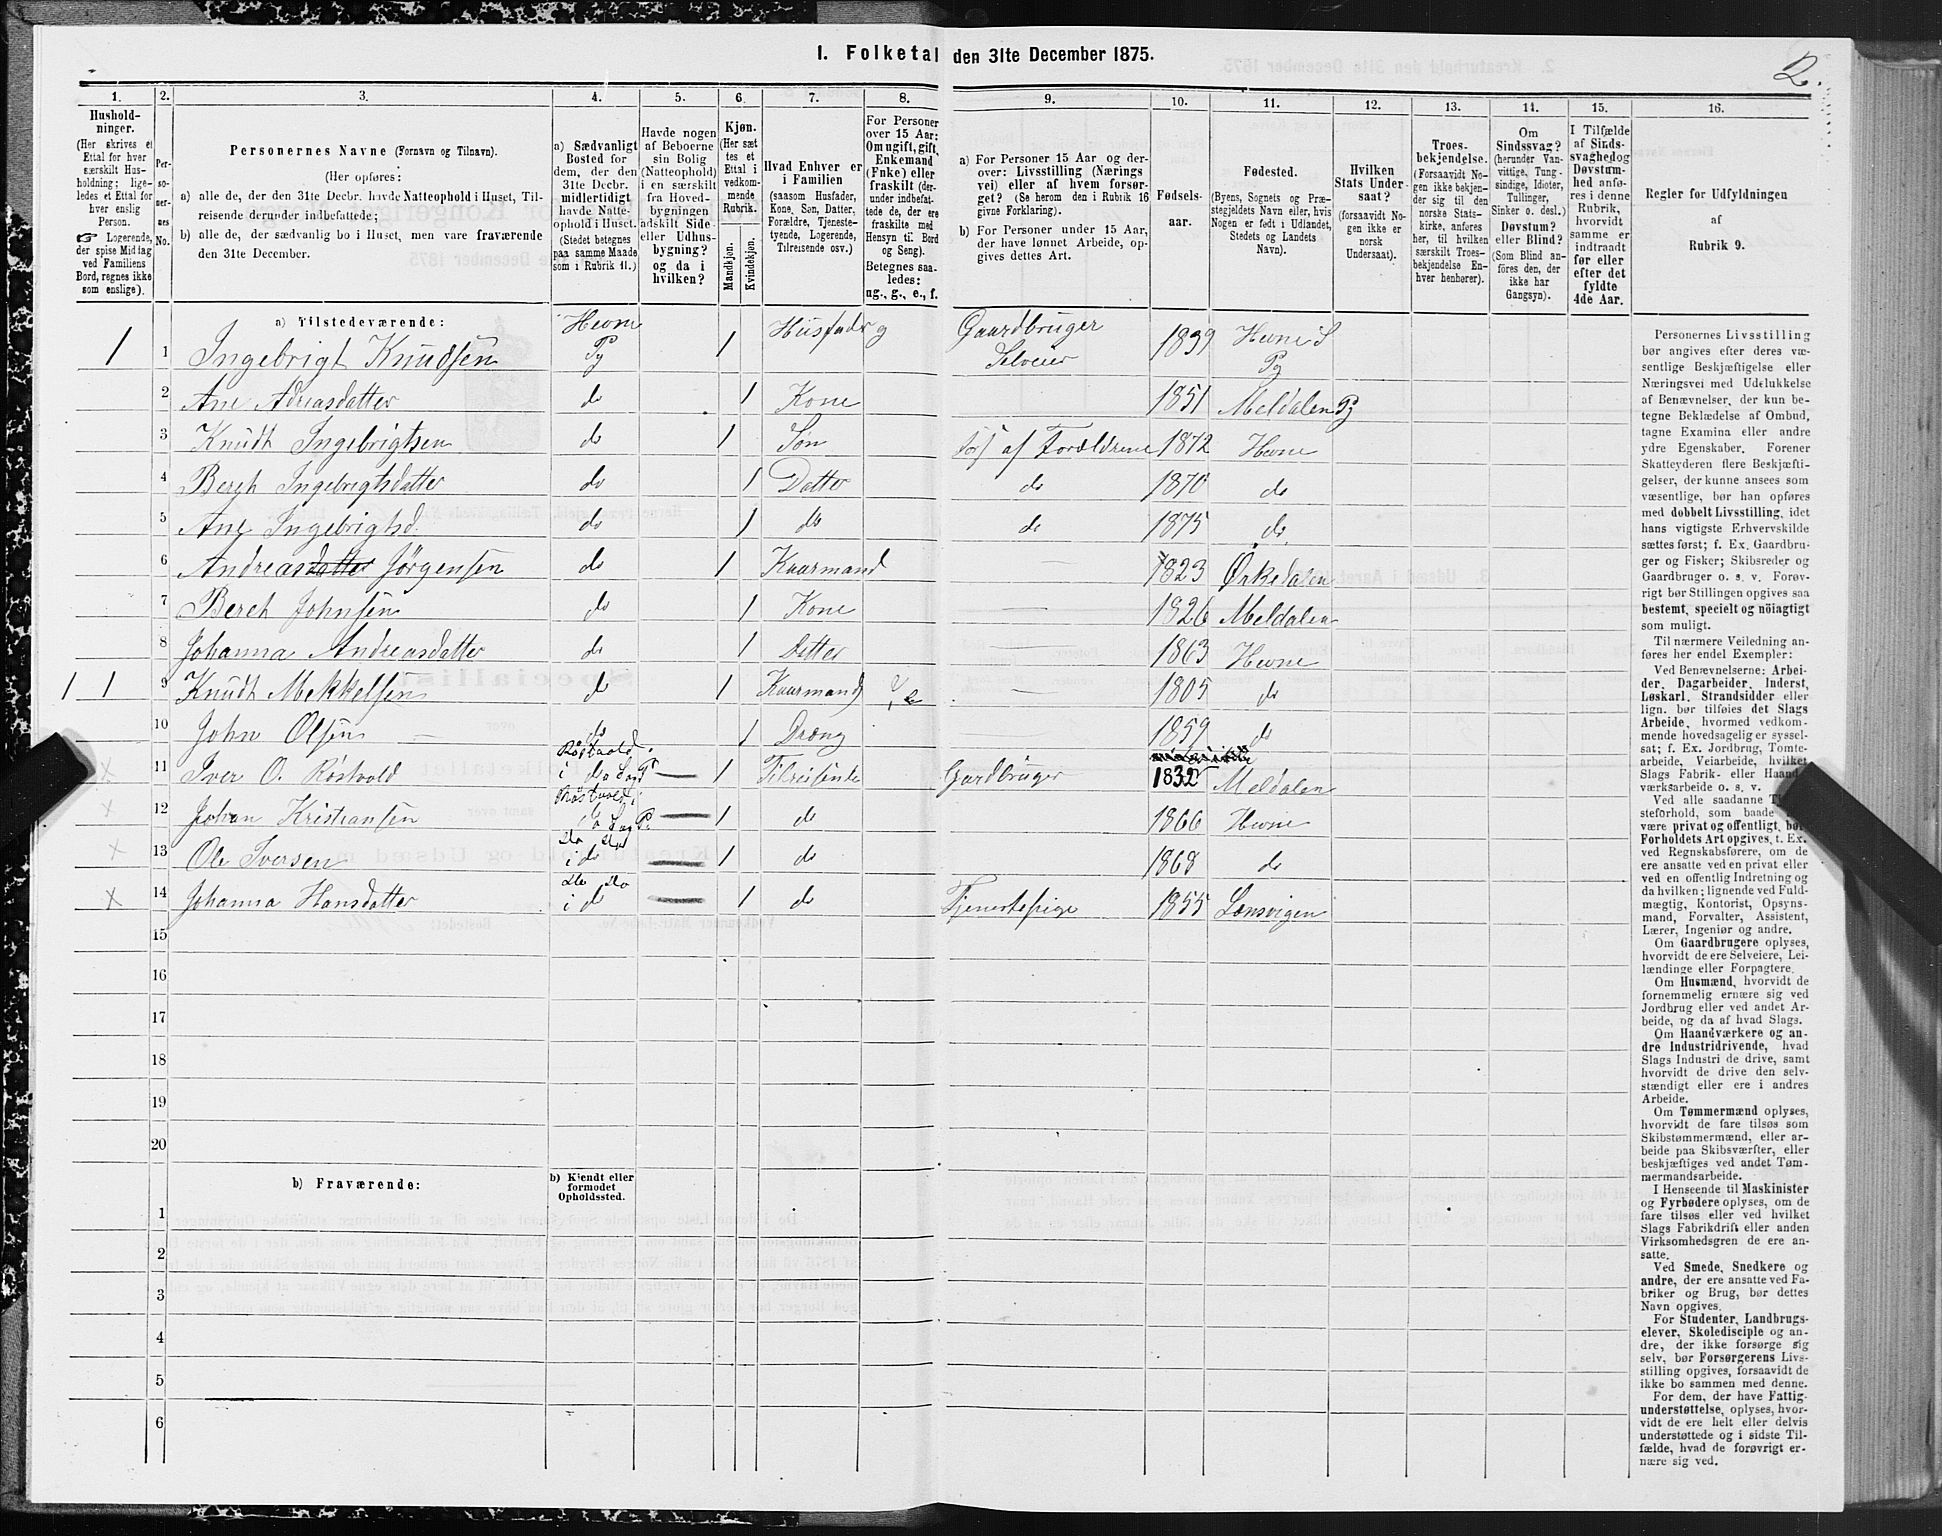 1. Folketal den 31te December 1875.
2.
1. 2. 3. 4. 5. 6. 7. 8. 9. 10. 11. 12. 13. 14. 15. 16.
Hushold-
ninger.
(Her skrives et
Ettal for hver
særskilt Hus-
holdning; lige-
ledes et Ettal for
hver enslig
Person.
☞ Logerende,
der spise Middag
ved Familiens
Bord, regnes ikke
som enslige).
Per-
so-
ner-
nes
No.
Personernes Navne (Fornavn og Tilnavn).
(Her opføres:
a) alle de, der den 31te Decbr. havde Natteophold i Huset, Til-
reisende derunder indbefattede;
b) alle de, der sædvanlig bo i Huset, men vare fraværende
den 31te December.
a) Sædvanligt
Bosted for
dem, der den
31te Decbr.
midlertidigt
havde Natte-
ophold i Huset.
(Stedet betegnes
paa samme Maade
som i Rubrik 11.)
Havde nogen
af Beboerne
sin Bolig
(Natteophold)
i en særskilt
fra Hoved-
bygningen
adskilt Side-
eller Udhus-
bygning?
og da i
hvilken?
Kjøn.
(Her sæt-
tes et
Ettal i
vedkom-
mende
Rubrik.
Mandkjøn.
Kvindekjøn.
Hvad Enhver er
i Familien
(saasom Husfader,
Kone, Søn, Datter,
Forældre, Tjeneste-
tyende, Logerende,
Tilreisende osv.)
For Personer
over 15 Aar:
Om ugift, gift,
Enkemand
(Enke) eller
fraskilt (der-
under indbefat-
tede de, der ere
fraskilte med
Hensyn til Bord
og Seng).
Betegnes saa-
ledes:
ug., g., e., f.
a) For Personer 15 Aar og der-
over: Livsstilling (Nærings
vei) eller af hvem forsør-
get? (Se herom den i Rubrik 16
givne Forklaring).
b) For Personer under 15 Aar,
der have lønnet Arbeide, op-
gives dettes Art.
Fødsels-
aar.
Fødested.
(Byens, Sognets og Præ-
stegjeldets Navn eller, hvis
Nogen er født i Udlandet,
Stedets og Landets
Navn).
Hvilken
Stats Under-
saat?
(forsaavidt No-
gen ikke er
norsk
Undersaat).
Troes-
bekjendelse.
(Forsaavidt No-
gen ikke bekjen-
der sig til den
norske Stats-
kirke, anføres
her, til hvilken
særskilt Troes-
bekjendelse En-
hver henhører).
Om
Sindssvag?
(herunder Van-
vittige, Tung-
sindige, Idioter,
Tullinger,
Sinker o. desl.)
Døvstum?
eller Blind?
(Som Blind an-
føres den, der
ikke har
Gangsyn).
I Tilfælde
af Sinds-
svaghed og
Døvstum-
hed anfø-
res i denne
Rubrik,
hvorvidt
samme er
indtraadt
før eller
efter det
fyldte
4de Aar.
Regler for Udfyldningen
af
Rubrik 9.
a) Tilstedeværende:
1 1 Ingebrigt Knudsen Hevne Pg 1 Husfader g Gaardbruger Selveier 1839 Hevne S Pg
2 Ane Adreasdatter do 1 Kone 1851 Meldalen Pg
3 Knudt Ingebrigtsen do 1 Søn fors af Forældrene 1872 Hevne
4 Bergh Ingebrigtsdatter do 1 Datter do 1870 do
5 Ane Ingebrigtsd. do 1 do do 1875 do
6 Andreasdatter Jørgensen do 1 Kaarmand 1823 Ørkedalen
7 Bereh Johnsen do 1 Kone — 1826 Meldalen
8 Johanna Andreasdatter do 1 Datter — 1863 Hevne
1 1 9 Knudt Mekkelsen do 1 Kaarmand e — 1805 do
10 John Olsen — do 1 Dræng 1859 do
× 11 Iver O. Røstvold Røstvold i do Sogn — 1 Tilreisende Gardbruger 1832 Meldalen
× 12 Johan Kristiansen Røstvold i do — 1 do 1866 Hevne
× 13 Ole Iversen do do i do — 1 do 1868 do
× 14 Johanna Hansdatter do do i do — 1 do Tjenestepige 1855 Lensvigen
15
16
17
18
19
20
b) Fraværende:
b) Kjendt eller
formodet
Opholdssted.
1
2
3
4
5
6
Personernes Livsstilling
bør angives efter deres væ-
sentlige Beskjæftigelse eller
Næringsvei med Udelukkelse
af Benævnelser, der kun be-
tegne Beklædelse af Ombud,
tagne Examina eller andre
ydre Egenskaber. Forener
Skatteyderen flere Beskjæfti-
gelser, der kunne ansees som
væsentlige, bør han opføres
med dobbelt Livsstilling, idet
hans vigtigste Erhvervskilde
sættes først; f. Ex. Gaardbru-
ger og Fisker; Skibsreder og
Gaardbruger o. s. v. Forøv-
rigt bør Stillingen opgives saa
bestemt, specielt og nøiagtigt
som muligt.
Til nærmere Veiledning an-
føres her endel Exempler:
Ved Benævnelserne: Arbei-
der, Dagarbeider, Inderst,
Løskarl, Strandsidder eller
lign. bør tilføies det Slags
Arbeide, hvormed vedkom-
mende hovedsagelig er syssel-
sat; f. Ex. Jordbrug, Tomte-
arbeide, Veiarbeide, hvilket
Slags Fabrik- eller Haand-
værksarbeide o. s. v.
Ved alle saadanne
steforhold, som baade
være privat og offentligt, bør
Forholdets Art opgives, t. Ex.
ved Regnskabsførere, om de
ere ansatte ved en privat eller
ved en offentlig Indretning og
da hvilken; lignende ved Fuld-
mægtig, Kontorist, Opsyns-
mand, Forvalter, Assistent,
Lærer, Ingeniør og andre.
Om Gaardbrugere oplyses,
hvorvidt de ere Selveiere, Lei-
lændinge eller Forpagtere.
Om Husmænd, hvorvidt de
fornemmelig ernære sig ved
Jordbrug eller ved andet Ar-
beide, og da af hvad Slags.
Om Haandværkere og an-
dre Industridrivende, hvad
Slags Industri de drive, samt
hvorvidt de drive den selv-
stændigt eller ere i andres
Arbeide.
Om Tømmermænd oplyses,
hvorvidt de fare tilsøs som
Skibstømmermænd, eller ar-
beide paa Skibsværfter, eller
beskjæftiges ved andet Tøm-
mermandsarbeide.
I Henseende til Maskinister
og Fyrbødere oplyses, om de
fare tilsøs eller ved hvilket
Slags Fabrikdrift eller anden
Virksomhedsgren de ere an-
satte.
Ved Smede, Snedkere og
andre, der ere ansatte ved Fa-
briker og Brug, bør dettes
Navn opgives.
For Studenter, Landbrugs-
elever, Skoledisciple og an-
dre, der ikke forsørge sig
selv, bør Forsørgerens Livs-
stilling opgives, forsaavidt de
ikke bo sammen med denne.
For dem, der have Fattig-
understøttelse, oplyses, hvor-
vidt de ere helt eller delvis
understøttede og i sidste Til-
fælde, hvad de forøvrigt er-
nære sig ved.